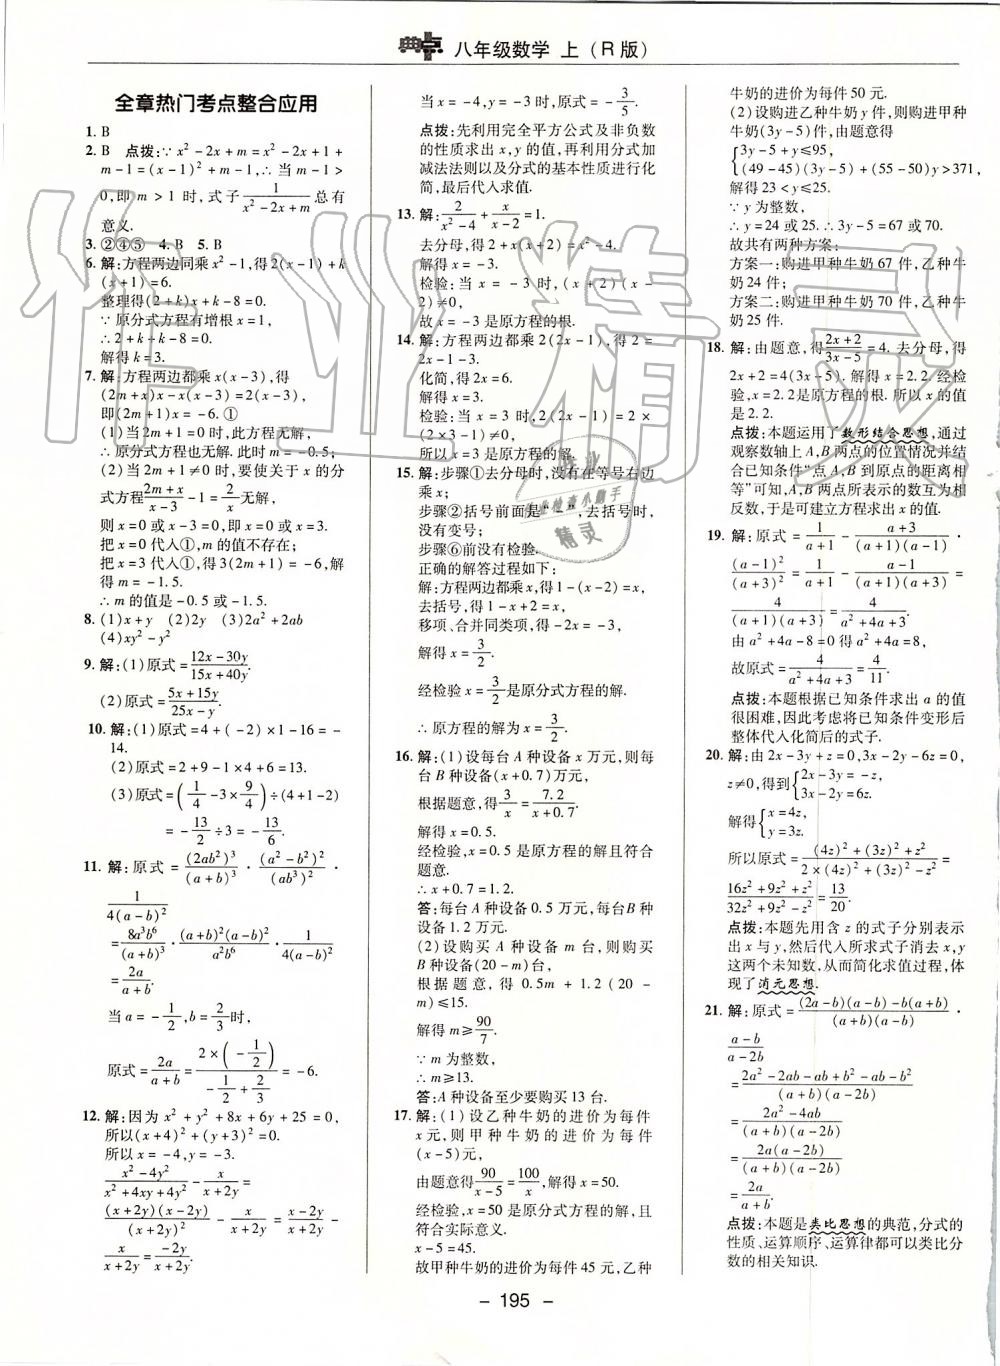 典点 八年级数学 上(R版)
全章热门考点整合应用
1. B
2. B 点拨:∵x²-2x+m=x²-2x+1+
m-1=(x-1)²+m-1,∴当m-1>
0,即m>1时,式子1/(x²-2x+m)总有
意义.
3. ②④⑤ 4. B 5. B
6. 解:方程两边同乘x²-1,得2(x-1)+k
(x+1)=6.
整理得(2+k)x+k-8=0.
∵原分式方程有增根x=1,
∴2+k+k-8=0.
解得k=3.
7. 解:方程两边都乘x(x-3),得
(2m+x)x-x(x-3)=2(x-3),
即(2m+1)x=-6.①
(1)当2m+1=0时,此方程无解,
∴原分式方程也无解.此时m=-0.5;
(2)当2m+1≠0时,要使关于x的分
式方程(2m+x)/(x-3)-1=2/x无解,
则x=0或x-3=0,即x=0或x=3.
把x=0代入①,m的值不存在;
把x=3代入①,得3(2m+1)=-6,解
得m=-1.5.
∴m的值是-0.5或-1.5.
8. (1)x+y (2)2y (3)2a²+2ab
(4)xy²-y²
9. 解:(1)原式=(12x-30y)/(15x+40y).
(2)原式=(5x+15y)/(25x-y).
10. 解:(1)原式=4+(-2)×1-16=-
14.
(2)原式=2+9-1×4+6=13.
(3)原式=(1/4-3×9/4)÷(4+1-2)
=-13/2÷3=-13/6.
11. 解:原式=(2ab²)³/(a+b)³·(a²-b²)²/(ab³)²·
1/4(a-b)²
=8a³b⁶/(a+b)³·(a+b)²(a-b)²/a²b⁶·1/4(a-b)²
=2a/(a+b).
当a=-1/2,b=2/3时,
原式=2a/(a+b)=2×(-1/2)/(-1/2+2/3)=-6.
12. 解:因为x²+y²+8x+6y+25=0,
所以(x+4)²+(y+3)²=0.
所以x=-4,y=-3.
(x²-4y²)/(x²+4xy+4y²)-x/(x+2y)=
(x+2y)(x-2y)/(x+2y)²-x/(x+2y)=(x-2y)/(x+2y)-
x/(x+2y)=-2y/(x+2y).
当x=-4,y=-3时,原式=-3/5.
点拨:先利用完全平方公式及非负数
的性质求出x,y的值,再利用分式加
减法法则以及分式的基本性质进行化
简,最后代入求值.
13. 解:2/(x²-4)+x/(x-2)=1.
去分母,得2+x(x+2)=x²-4.
解得x=-3.
检验:当x=-3时,(x+2)(x-
2)≠0.
故x=-3是原方程的根.
14. 解:方程两边都乘2(2x-1),得2=
2x-1-3.
化简,得2x=6.
解得x=3.
检验:当x=3时,2(2x-1)=2×
(2×3-1)≠0.
所以x=3是原方程的解.
15. 解:步骤①去分母时,没有在等号右边
乘x;
步骤②括号前面是“-”,去括号时,
没有变号;
步骤⑥前没有检验.
正确的解答过程如下:
解:方程两边都乘x,得1-(x-2)=x,
去括号,得1-x+2=x,
移项、合并同类项,得-2x=-3,
解得x=3/2.
经检验x=3/2是原分式方程的解.
∴原方程的解为x=3/2.
16. 解:(1)设每台A种设备x万元,则每
台B种设备(x+0.7)万元,
根据题意,得3/x=7.2/(x+0.7).
解得x=0.5.
经检验,x=0.5是原方程的解且符合
题意.
∴x+0.7=1.2.
答:每台A种设备0.5万元,每台B种
设备1.2万元.
(2)设购买A种设备m台,则购买
B种设备(20-m)台,
根据题意,得0.5m+1.2(20-
m)≤15.
解得m≥90/7.
∵m为整数,
∴m≥13.
答:A种设备至少要购买13台.
17. 解:(1)设乙种牛奶的进价为每件
x元,则甲种牛奶的进价为每件
(x-5)元,
由题意得90/(x-5)=100/x,解得x=50.
经检验,x=50是原分式方程的解,且
符合实际意义.
x-5=45.
故甲种牛奶的进价为每件45元,乙种
牛奶的进价为每件50元.
(2)设购进乙种牛奶y件,则购进甲种
牛奶(3y-5)件,由题意得
{3y-5+y≤95,
(49-45)(3y-5)+(55-50)y>371,
解得23<y≤25.
∵y为整数,
∴y=24或25.∴3y-5=67或70.
故共有两种方案:
方案一:购进甲种牛奶67件,乙种牛
奶24件;
方案二:购进甲种牛奶70件,乙种牛
奶25件.
18. 解:由题意,得(2x+2)/(3x-5)=4. 去分母,得
2x+2=4(3x-5). 解得x=2.2. 经检
验,x=2.2是原方程的根. 所以x的值
是2.2.
点拨:本题运用了数形结合思想,通过
观察数轴上A,B两点的位置情况并结
合已知条件“点A,B到原点的距离相
等”可知,A,B两点所表示的数互为相
反数,于是可建立方程求出x的值.
19. 解:原式=1/(a+1)-(a+3)/(a+1)(a-1)·
(a-1)²/(a+3)²=1/(a+1)-(a-1)/(a+1)(a+3)=
4/(a+1)(a+3)=4/(a²+4a+3).
由a²+4a-8=0得a²+4a=8,
故原式=4/(a²+4a+3)=4/11.
点拨:本题根据已知条件求出a的值
很困难,因此考虑将已知条件变形后
整体代入化简后的式子.
20. 解:由2x-3y+z=0,3x-2y-6z=0,
z≠0,得到{2x-3y=-z,
3x-2y=6z.
解得{x=4z,
y=3z.
所以原式=((4z)²+(3z)²+z²)/(2×(4z)²+(3z)²-z²)=
(16z²+9z²+z²)/(32z²+9z²-z²)=13/20.
点拨:本题先用含z的式子分别表示
出x与y,然后代入所求式子消去x,y
这两个未知数,从而简化求值过程,体
现了消元思想.
21. 解:原式=((2a-b)(a-b)-b(a+b))/(a+b)(a-b)·
(a-b)/(a-2b)
=(2a²-2ab-ab+b²-ab-b²)/(a+b)(a-2b)
=(2a²-4ab)/(a+b)(a-2b)
=2a(a-2b)/(a+b)(a-2b)
=2a/(a+b).
点拨:本题是类比思想的典范,分式的
性质、运算顺序、运算律都可以类比分
数的相关知识.
- 195 -
作业精灵